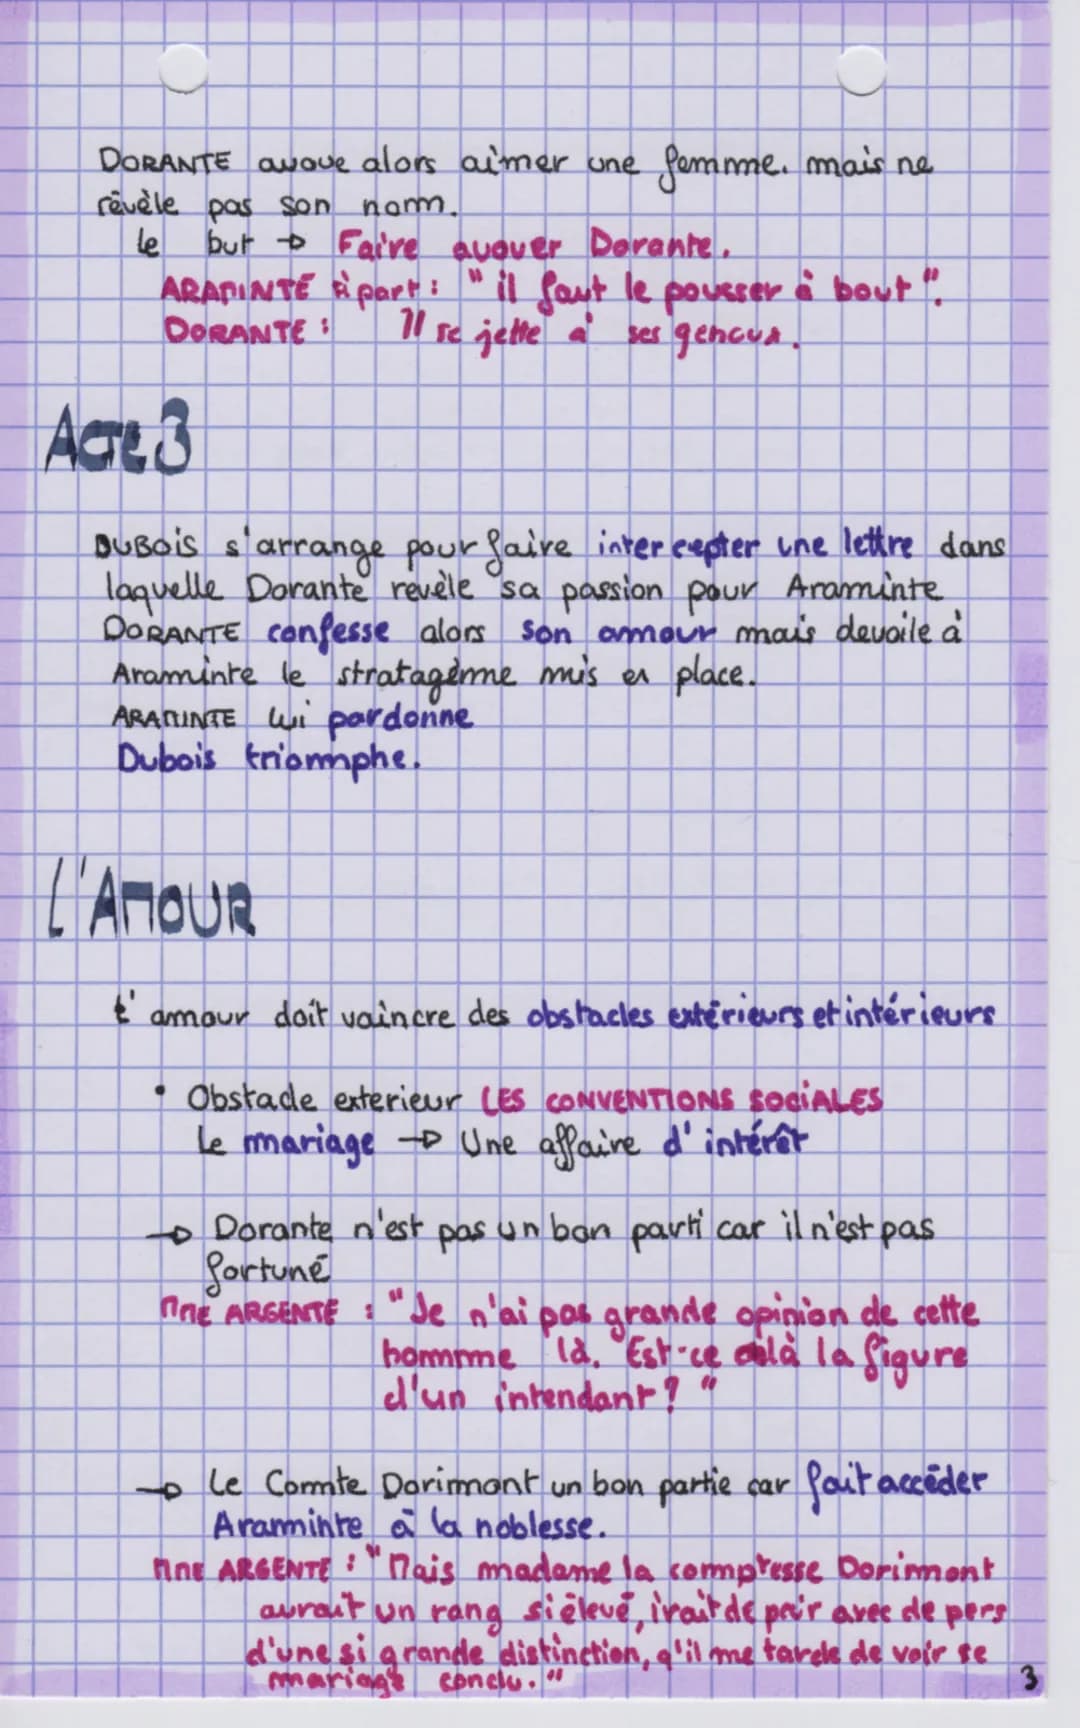 DORANTE avoue alors aimer une femme. mais ne
révèle pas son nom.
le but → Faire avouer Dorante.
ARAMINTE à part : "il faut le pousser à bout".
DORANTE : Il se jette à ses genoux.
Acte 3
DUBOIS s'arrange pour faire intercepter une lettre dans
laquelle Dorante revèle sa passion pour Araminte
DORANTE confesse alors son amour mais devoile à
Araminte le stratagème mis en place.
ARAMINTE lui pardonne
Dubois triomphe.
L'AMOUR
L'amour doit vaincre des obstacles extérieurs et intérieurs
• Obstacle exterieur LES CONVENTIONS SOCIALES
Le mariage → Une affaire d'intérêt
→ Dorante n'est pas un bon parti car il n'est pas
fortuné
MME ARGENTE : "Je n'ai pas grande opinion de cette
homme là. Est-ce celà la figure
d'un intendant ? "
→ Le Comte Dorimont un bon partie car fait accéder
Araminte à la noblesse.
MME ARGENTE : "Mais madame la comptesse Dorimont
aurait un rang si élevé, irait de pair avec de pers
d'une si grande distinction, q'il me tarde de voir se
mariage conclu."
3